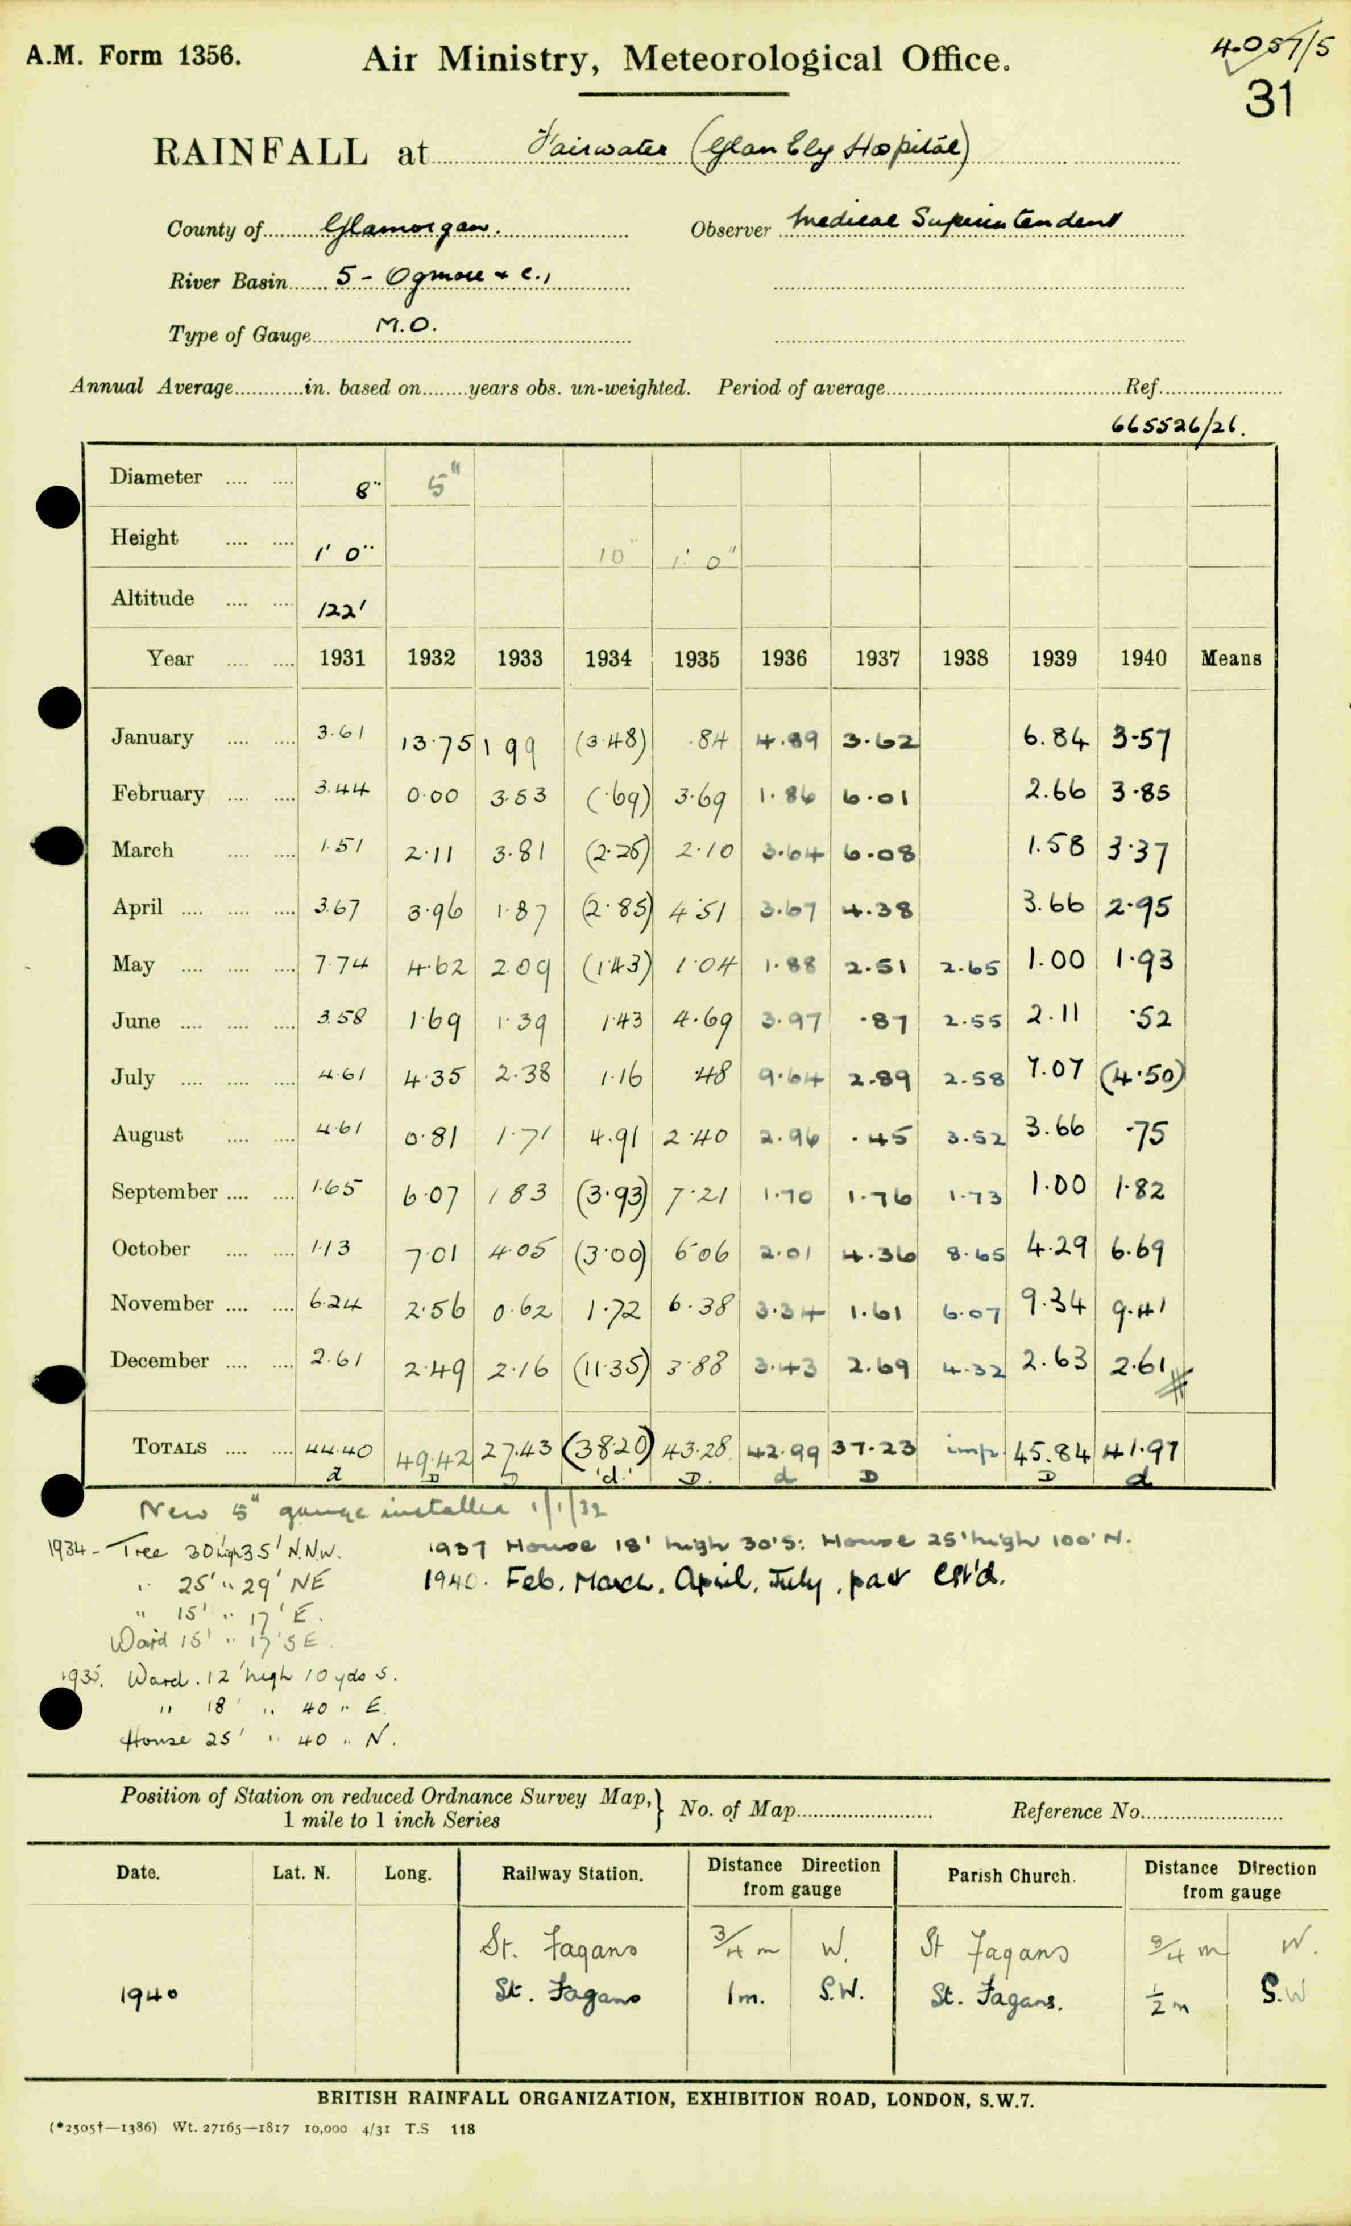 A.M. Form 1356.
Air Ministry, Meteorological Office.
4057/5
31
RAINFALL at Fairwater (Glan Ely Hospital)
County of Glamorgan. Observer Medical Superintendent
River Basin 5 - Ogmore & c.,
Type of Gauge M.O.
Annual Average in. based on years obs. un-weighted. Period of average Ref.
665526/26.
Diameter 8" 5"
Height 1' 0" 10" 1' 0"
Altitude 122'
Year 1931 1932 1933 1934 1935 1936 1937 1938 1939 1940 Means
January 3.61 13.75 1 99 (3.48) .84 4.89 3.62 6.84 3.57
February 3.44 0.00 3.53 (.69) 3.69 1.86 6.01 2.66 3.85
March 1.51 2.11 3.81 (2.25) 2.10 3.64 6.08 1.58 3.37
April 3.67 3.96 1.87 (2.85) 4.51 3.67 4.38 3.66 2.95
May 7.74 4.62 2.09 (1.43) 1.04 1.88 2.51 2.65 1.00 1.93
June 3.58 1.69 1.39 1.43 4.69 3.97 .87 2.55 2.11 .52
July 4.61 4.35 2.38 1.16 .48 9.64 2.89 2.58 7.07 (4.50)
August 4.61 0.81 1.71 4.91 2.40 2.96 .45 3.52 3.66 .75
September 1.65 6.07 1 83 (3.93) 7.21 1.70 1.76 1.73 1.00 1.82
October 1.13 7.01 4.05 (3.00) 6.06 2.01 4.36 8.65 4.29 6.69
November 6.24 2.56 0.62 1.72 6.38 3.34 1.61 6.07 9.34 9.41
December 2.61 2.49 2.16 (11.35) 3.88 3.43 2.69 4.32 2.63 2.61
TOTALS 44.40 49.42 27.43 (38.20) 43.28 42.99 37.23 imp. 45.84 41.97
d D D 'd.' D. d D D d
New 5" gauge installed 1/1/32
1934 - Tree 30' high 35' N.N.W. 1937 House 18' high 30' S: House 25' high 100' N.
" 25' " 29' NE 1940. Feb. March. April. July, part est'd.
" 15' " 17' E.
Ward 15' " 17' S E.
1935. Ward. 12' high 10 yds S.
" 18' " 40 " E.
House 25' " 40 " N.
Position of Station on reduced Ordnance Survey Map, 1 mile to 1 inch Series } No. of Map Reference No.
Date. Lat. N. Long. Railway Station. Distance Direction from gauge Parish Church. Distance Direction from gauge
St. Fagans 3/4 m W. St Fagans 3/4 m W.
1940 St. Fagans 1m. S.W. St. Fagans. 1/2 m S.W
BRITISH RAINFALL ORGANIZATION, EXHIBITION ROAD, LONDON, S.W.7.
(*2505†—1386) Wt. 27165—1817 10,000 4/31 T.S 118